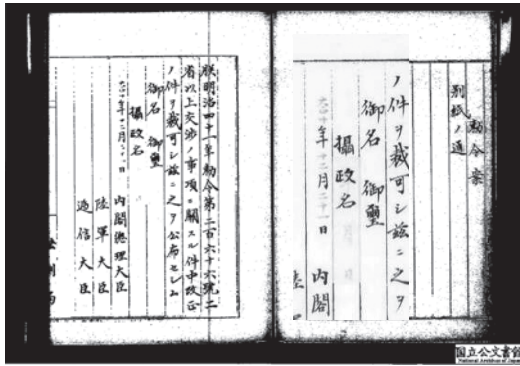 勅令案
別紙ノ通
ノ件ヲ裁可シ茲ニ之ヲ
御名 御璽
攝政名
大正十年十二月二十一日 内閣
朕明治四十一年勅令第二百六十六號二
省以上交渉ノ事項ニ關スル件中改正
ノ件ヲ裁可シ茲ニ之ヲ公布セシム
御名 御璽
攝政名
大正十年十二月二十一日 内閣總理大臣
陸軍大臣
遞信大臣
国立公文書館
National Archives of Japan